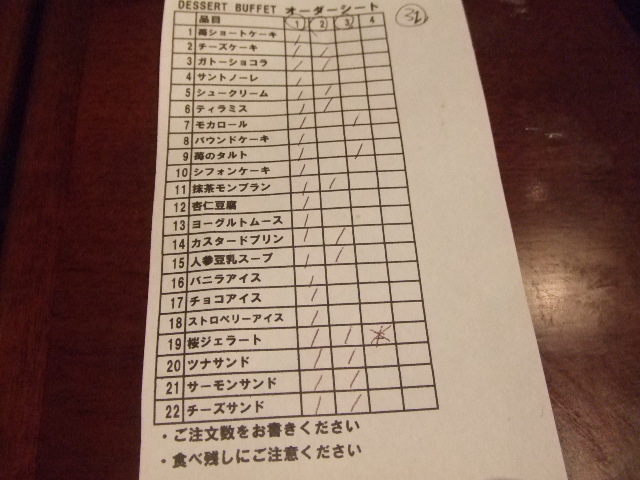 DESSERT BUFFET オーダーシート
品目 1 2 3 4 32
1 苺ショートケーキ / 
2 チーズケーキ / /
3 ガトーショコラ / /
4 サントノーレ /
5 シュークリーム / /
6 ティラミス / /
7 モカロール / /
8 パウンドケーキ /
9 苺のタルト / /
10 シフォンケーキ /
11 抹茶モンブラン / /
12 杏仁豆腐 /
13 ヨーグルトムース /
14 カスタードプリン / /
15 人参豆乳スープ / /
16 バニラアイス /
17 チョコアイス /
18 ストロベリーアイス /
19 桜ジェラート / /
20 ツナサンド / /
21 サーモンサンド / /
22 チーズサンド / /
・ご注文数をお書きください
・食べ残しにご注意ください